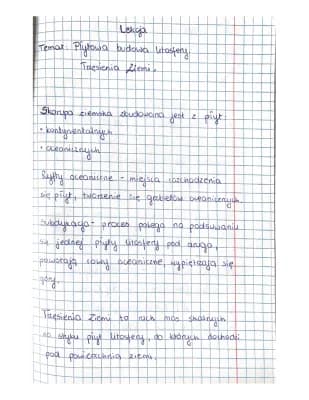 Lekcja
Temat: Płytowa budowa litosfery.
Trzęsienia Ziemi.
Skorupa ziemska zbudowana jest z płyt:
• kontynentalnych
• oceanicznych
Ryfty oceaniczne - miejsca rozchodzenia
się płyt, tworzenie się grzbietów oceanicznych.
Subdukcja - proces polega na podsuwaniu
się jednej płyty litosfery pod drugą,
powstają rowy oceaniczne, wypiętrzają się
góry.
Trzęsienia Ziemi to ruch mas skalnych
na styku płyt litosfery, do których dochodzi
pod powierzchnią ziemi.